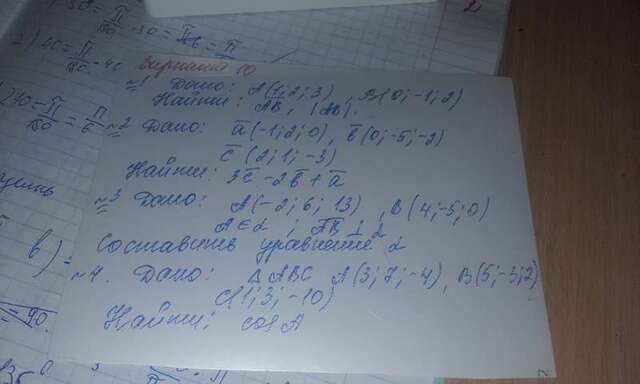 30 = π/180 · 30 = π/6 = π
40 = π/180 · 40
240 = π/180 = π/6
в) =
= 90.
Вариант 10
№1 Дано: A(1; 2; 3), B(0; -1; 2)
Найти: AB, |AB|.
№2 Дано: a̅(-1; 2; 0), b̅(0; -5; -2)
c̅(2; 1; -3)
Найти: 3c̅ - 2b̅ + a̅
№3 Дано: A(-2; 6; 13), B(4; -5; 0)
A ∈ α ; A̅B̅ ⊥ α
Составить уравнение α
№4. Дано: Δ ABC A(3; 7; -4), B(5; -3; 2)
C(1; 3; -10)
Найти: cos A